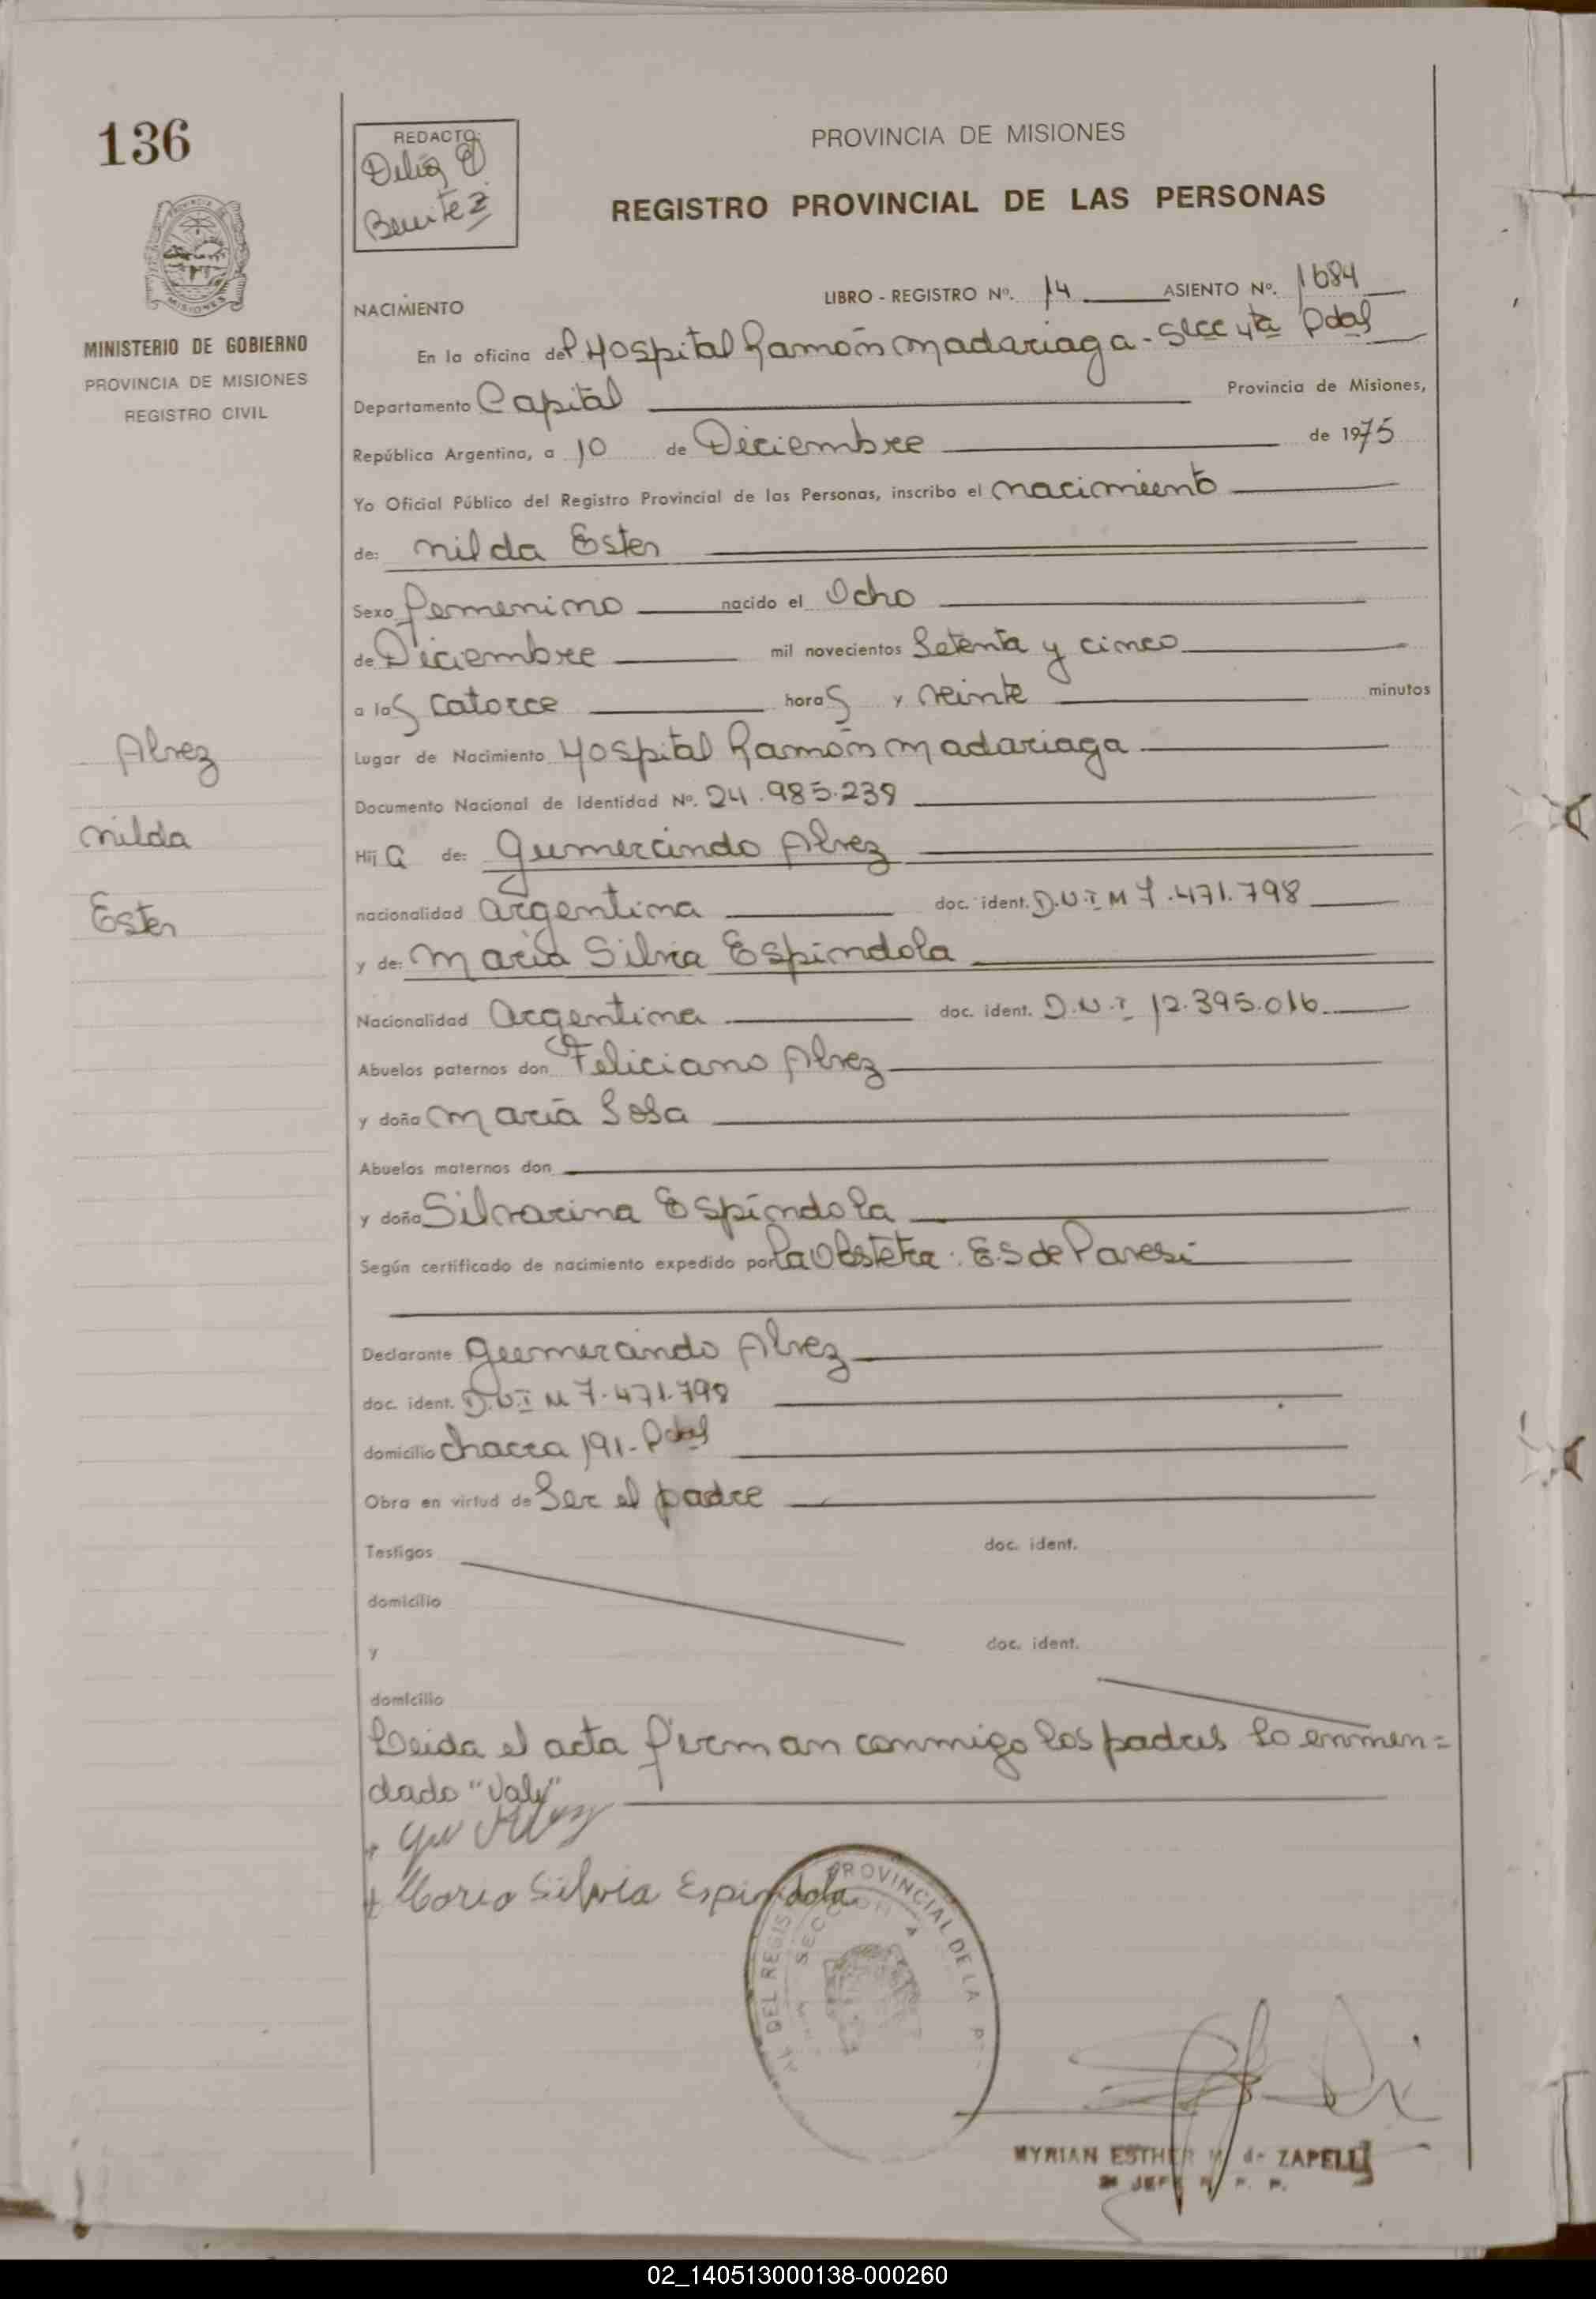 136
REDACTO:
Delia
Benitez
PROVINCIA DE MISIONES
REGISTRO PROVINCIAL DE LAS PERSONAS
MINISTERIO DE GOBIERNO
PROVINCIA DE MISIONES
REGISTRO CIVIL
NACIMIENTO
LIBRO - REGISTRO Nº. 14 ASIENTO Nº. 1684
En la oficina del Hospital Ramón Madariaga - Secc 4ta Pdas
Departamento Capital Provincia de Misiones,
República Argentina, a 10 de Diciembre de 1975
Yo Oficial Público del Registro Provincial de las Personas, inscribo el nacimiento
de: Nilda Ester
Sexo femenino nacido el Ocho
de Diciembre mil novecientos Setenta y cinco
a las catorce horas y veinte minutos
Lugar de Nacimiento Hospital Ramón Madariaga
Documento Nacional de Identidad Nº. 24.985.239
Hija de: Gumercindo Alvez
nacionalidad argentina doc. ident. D.N.I M 7.471.798
y de: Maria Silvia Espindola
Nacionalidad Argentina doc. ident. D.N.I 12.395.016
Abuelos paternos don Feliciano Alvez
y doña María Sosa
Abuelos maternos don
y doña Silvarina Espíndola
Según certificado de nacimiento expedido por la Obstetra: E.S de Paresi
Declarante Gumercindo Alvez
doc. ident. D.N.I M 7.471.798
domicilio chacra 191-Pdas
Obra en virtud de Ser el padre
Testigos doc. ident.
domicilio
y doc. ident.
domicilio
Leida el acta firman conmigo los padres lo enmen=
dado "Vale"
Maria Silvia Espindola
Alvez
Nilda
Ester
DEL REGIS PROVINCIAL DE LA P
SECCION 4
MYRIAN ESTHER de ZAPELLI
JEFE R. P. P.
02_140513000138-000260